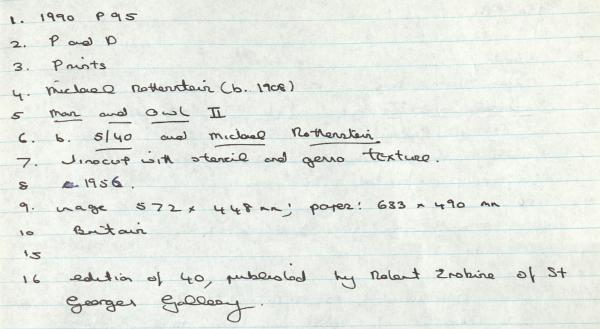 1. 1990 P95
2. P and D
3. Prints
4. Michael Rothenstein (b. 1908)
5 Man and Owl II
6. b. 5/40 and Michael Rothenstein
7. Linocut with stencil and gesso texture.
8 c 1956.
9. image 572 x 448 mm; paper: 633 x 490 mm
10 Britain
15
16 edition of 40, published by Robert Erskine of St
Georges Gallery.